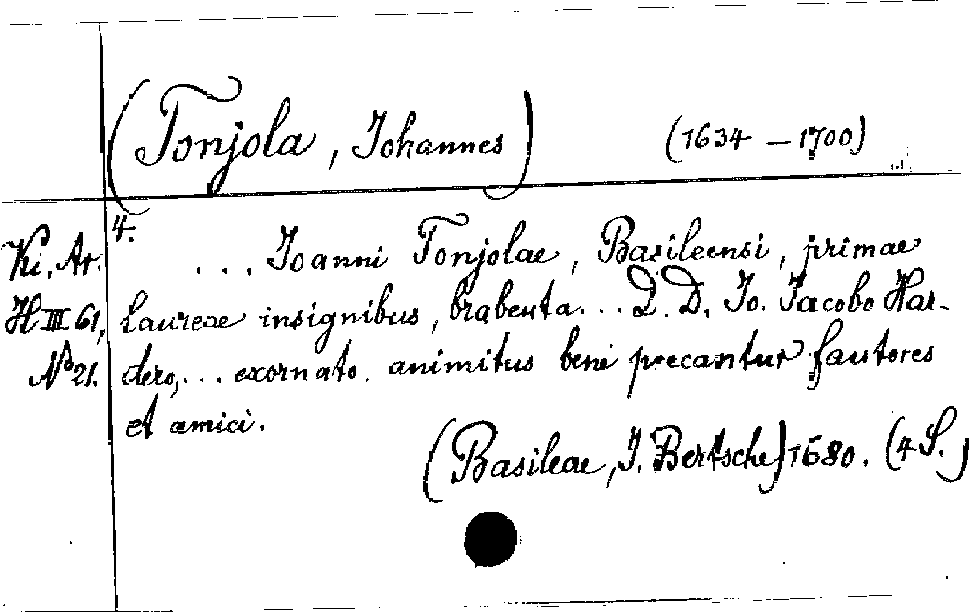 (Tonjola, Johannes) (1634 – 1700)
4.
Ki. Ar. ... Ioanni Tonjolae, Basileensi, primae
H III 61, laureae insignibus, brabeuta... D. D. Jo. Jacobo Har-
No 21. dero, ... exornato. animitus bene precantur fautores
et amici.
(Basileae, J. Bertsche) 1680. (4 S.)